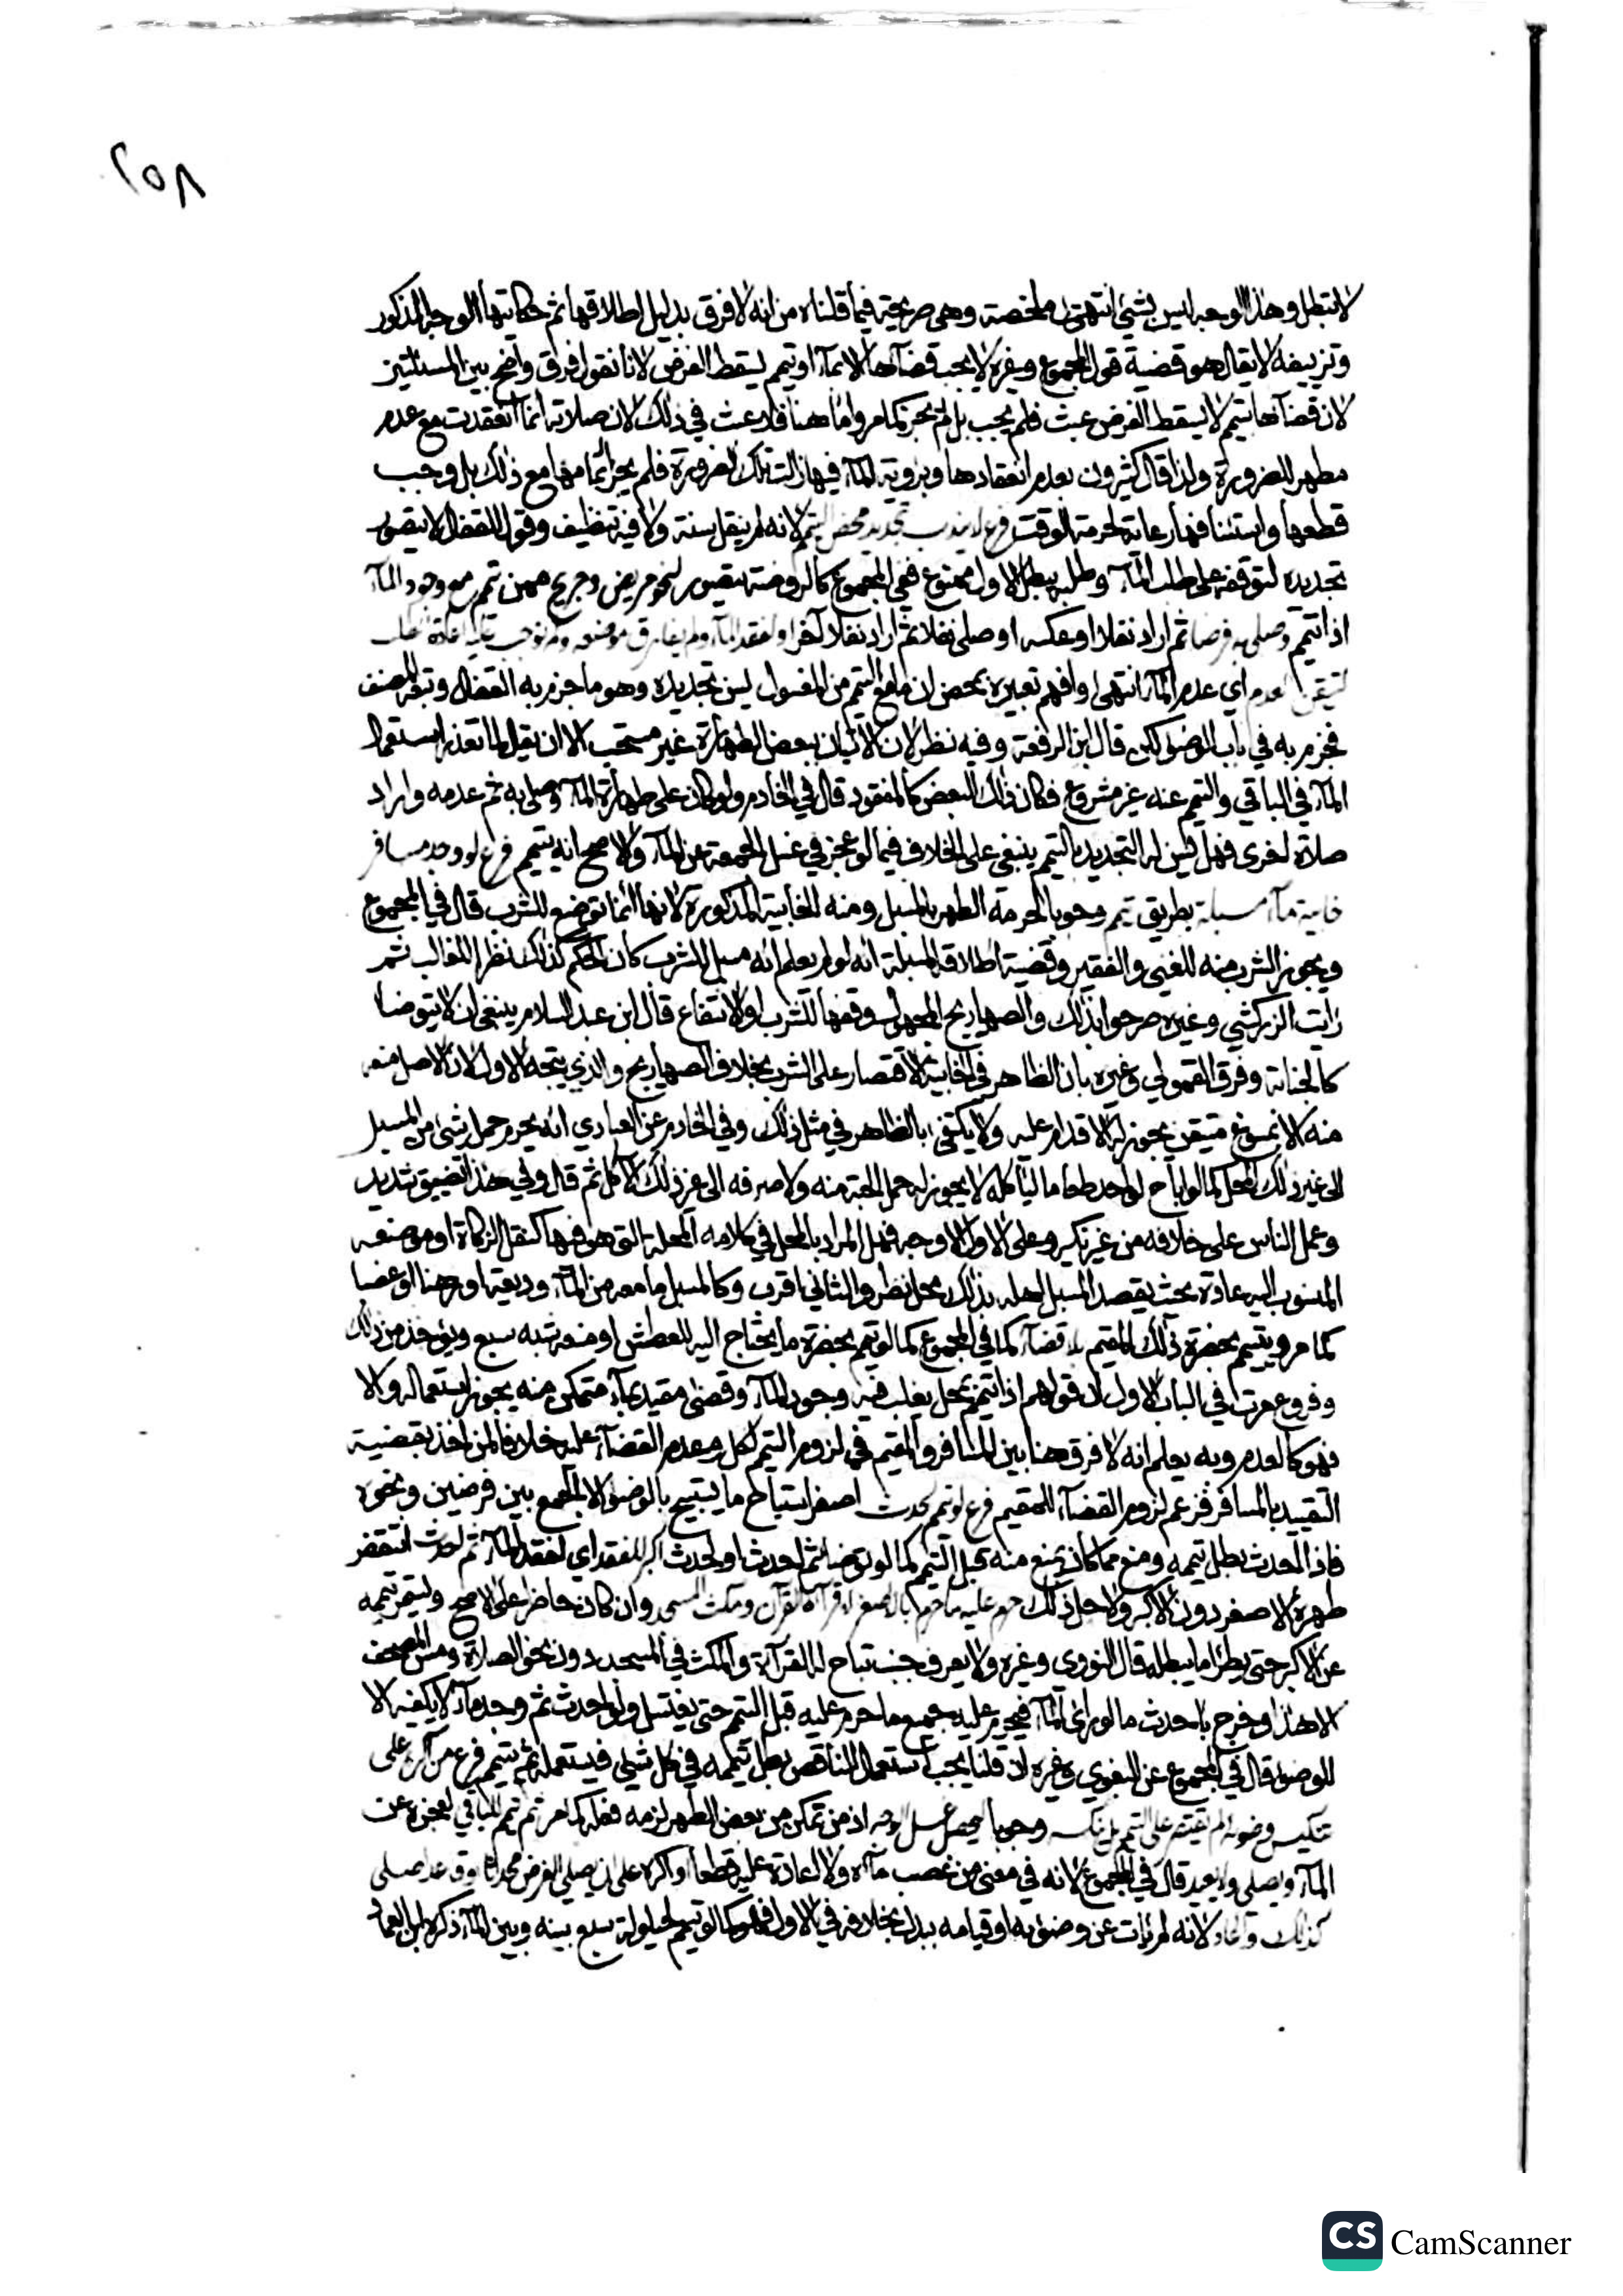 ٢٥٨
لا تبطل وهذا الوجه ليس بشيء انتهت ملخصة وهي صريحة فيما قلناه من انه لا فرق بدليل اطلاقها ثم حكايتها الوجه المذكور
وتزييفه لا يقال هو قضية قول المجموع وغيره لا يجب قضآءها الا بمآء او تيمم يسقط الفرض لانا نقول فرق واضح بين المسئلتين
لان قضآءها بتيمم لا يسقط الفرض عبث فلم يجب بل لم يجز كما مر واما هنا فلا عبث في ذلك لان صلاته انما انعقدت مع عدم
مطهر للضرورة ولذا قال كثيرون بعدم انعقادها وبرؤية المآء فيها زالت تلك الضرورة فلم يجز اتمامها مع ذلك بل وجب
قطعها واستئنافها رعاية لحرمة الوقت فرع لا يندب تجديد محض التيمم لانه لم ينقل سنة ولا فيه تنظيف وقول القفال لا يتصور
تجديده لتوقفه على طلب المآء وطلبه يبطل الاول ممنوع ففي المجموع كالروضة يتصور لنحو مريض وجريح ممن تيمم مع وجود المآء
اذا تيمم وصلى به فرضا ثم اراد نفلا او عكسه او صلى نفلا ثم اراد نفلا آخر او لفقد المآء ولم يفارق موضعه ولم نوجب عليه اعادة الطلب
لتيقن العدم اي عدم المآء انتهى وافهم تعبيره بمحض ان ما مع التيمم من المغسول يسن تجديده وهو ما جزم به القفال وتبعه المصنف
فجزم به في باب الوضوء لكن قال ابن الرفعة وفيه نظر لان الاتيان ببعض الطهارة غير مستحب الا ان يقال لما تعذر استعمال
المآء في الباقي والتيمم عنه غير مشروع فكان ذلك البعض كالمفقود قال في الخادم ولو كان على طهارة المآء وصلى به ثم عدمه واراد
صلاة اخرى فهل يسن له التجديد بالتيمم ينبغي على الخلاف فيما لو عجز في غسل الجمعة عن المآء والاصح انه يتيمم فرع لو وجد مسافر
خابية مآء مسبلة بطريق تيمم وجوبا لحرمة الطهر بالمسبل ومنه الخابية المذكورة لانها انما توضع للشرب قال في المجموع
ويجوز الشرب منه للغني والفقير وقضية اطلاقه المسبلة انه لو لم يعلم انه مسبل للشرب كان الحكم كذلك نظرا للغالب ثم
رايت الزركشي وغيره صرحوا بذلك والصهاريج المجهول وقفها للشرب او الانتفاع قال ابن عبد السلام ينبغي ان لا يتوضا
كالخابية وفرق القمولي وغيره بان الظاهر في الخابية الاقتصار على الشرب بخلاف الصهاريج والذي يتجه الاول لان الاصل منعه
منه الا بمسوغ متيقن يجوز له الاقدام عليه ولا يكتفى بالظاهر في مثل ذلك وفي الخادم عن العبادي انه يحرم حمل شيء من المسبل
الى غير ذلك المحل كما لو اباح لواحد طعاما لياكله لا يجوز له حمل الحبة منه ولا صرفه الى غير ذلك الاكل ثم قال وفي هذا تضييق شديد
وعمل الناس على خلافه من غير نكير وعلى الاول الاوجه فهل المراد بالمحل في كلامه المحلة التي هو فيها كنقل الزكاة او موضعه
المنسوب اليه عادة بحيث يقصد المسبل اهله بذلك محل نظر والثاني اقرب وكالمسبل ما معه من المآء وديعة او رهنا او غصبا
كما مر ويتيمم بحضرة ذلك المقيم بلا قضآء كما في المجموع كما لو تيمم بحضرة ما يحتاج اليه للعطش او منعه منه سبع ويؤخذ من ذلك
وفروع مرت في الباب الاول ان قولهم اذا تيمم بمحل يغلب فيه وجود المآء وقضى مقيد بمآء متمكن منه يجوز استعماله والا
فهو كالعدم وبه يعلم انه لا فرق هنا بين المسافر والمقيم في لزوم التيمم لكل وعدم القضآء عليه خلافا لمن اخذ بقضية
التقييد بالمسافر فزعم لزوم القضآء للمقيم فرع لو تيمم لحدث اصغر استباح ما يستبيح بالوضوء الا الجمع بين فرضين ونحوه
فاذا احدث بطل تيممه ومنع مما كان يمنع منه قبل التيمم كما لو توضا ثم احدث او لحدث اكبر للفقد اي لفقد المآء ثم احدث انتقض
طهره الاصغر دون الاكبر ولاجل ذلك حرم عليه ما حرم بالاصغر لا قرآءة القرآن ومكث المسجد وان كان حاضرا على الاصح وليستمر تيممه
عن الاكبر حتى يطرا ما يبطله قال النووي وغيره ولا يعرف جنب تباح له القرآءة والمكث في المسجد دون نحو الصلاة ومس المصحف
الا هذا وخرج باحدث ما لو راى المآء فيحرم عليه جميع ما حرم عليه قبل التيمم حتى يغتسل ولو احدث ثم وجد مآء لا يكفيه الا
للوضوء قال في المجموع عن البغوي وغيره ان قلنا يجب استعمال الناقص بطل تيممه في كل شيء فيستعمله ثم يتيمم فرع من اكره على
تنكيس وضوئه لم يقتصر على التيمم بل نكسه وجوبا ليحصل غسل الوجه اذ من تمكن من بعض الطهر لزمه فعله كما مر ثم تيمم للباقي لعجزه عن
المآء ويصلي ولا يعيد قال في المجموع لانه في معنى من غصب مآءه ولا اعادة عليه قطعا او اكره على ان يصلي الفرض محدثا وقد صلى
كذلك واعاد لانه لم يات عن وضوئه او قيامه ببدل بخلافه في الاول فهو كما لو تيمم لحيلولة سبع بينه وبين المآء ذكره ابن العماد
CS CamScanner